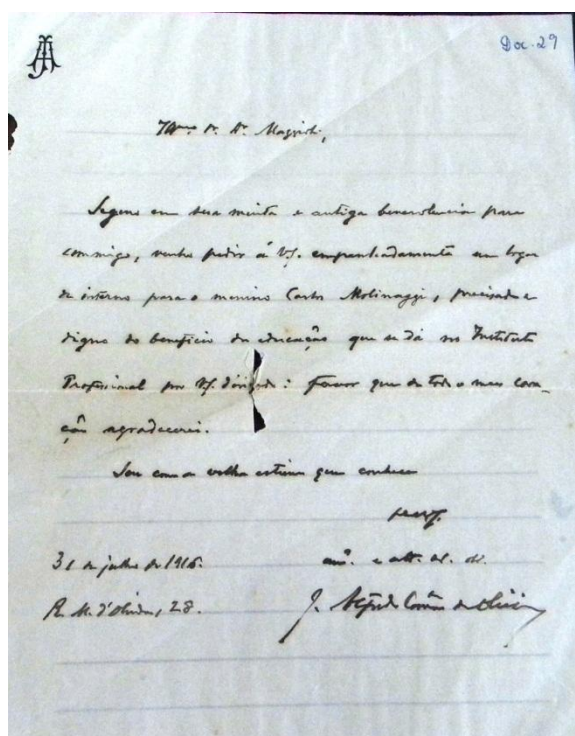 Doc. 29
Sr. Dr.
Seguro em sua muita e antiga benevolencia para
commigo, venho pedir á V. empenhadamente um logar
de interno para o menino Carlos Molinaggi, precisado e
digno do beneficio da educação que se dá no Instituto
Profissional por V. dirigido: favor que de todo o meu cora-
ção agradecerei.
Sou com a velha estima que conhece
31 de julho de 1916.
am. e att. cr. ob.
R. M. d'Olinda, 28.
J. Alfredo Corrêa de Oliveira